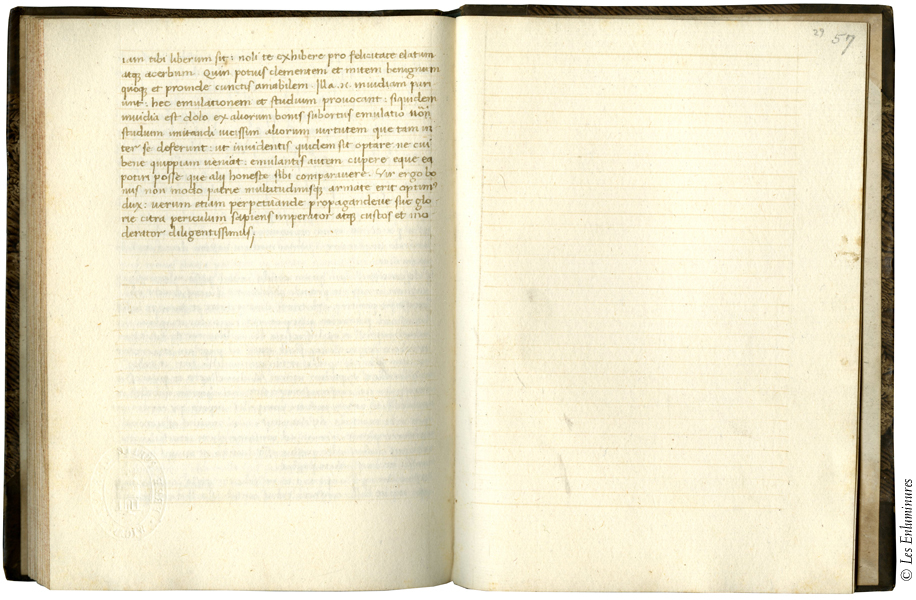 iam tibi liberum sit: noli te exhibere pro felicitate elatum
atq; acerbum. Quin potius clementem et mitem benignum
quoq; et proinde cunctis amabilem. Illa .n. invidiam pari
unt: hec emulationem et studium provocant: siquidem
invidia est dolo ex aliorum bonis subortus emulatio
studium imitandi aliorum virtutem que tam in
ter se deferunt: ut invidentis quidem sit optare ne cui
bene quippiam veniat: emulantis autem cupere eque ea
potiri posse que alij honeste sibi comparavere. Vir ergo bo
nus non modo patrie multitudinisq; armate erit optimꝰ
dux: verum etiam perpetuande propagandeue sue glo
rie citra periculum sapiens imperator atq; custos et mo
derator diligentissimus;
29 57
© Les Enluminures